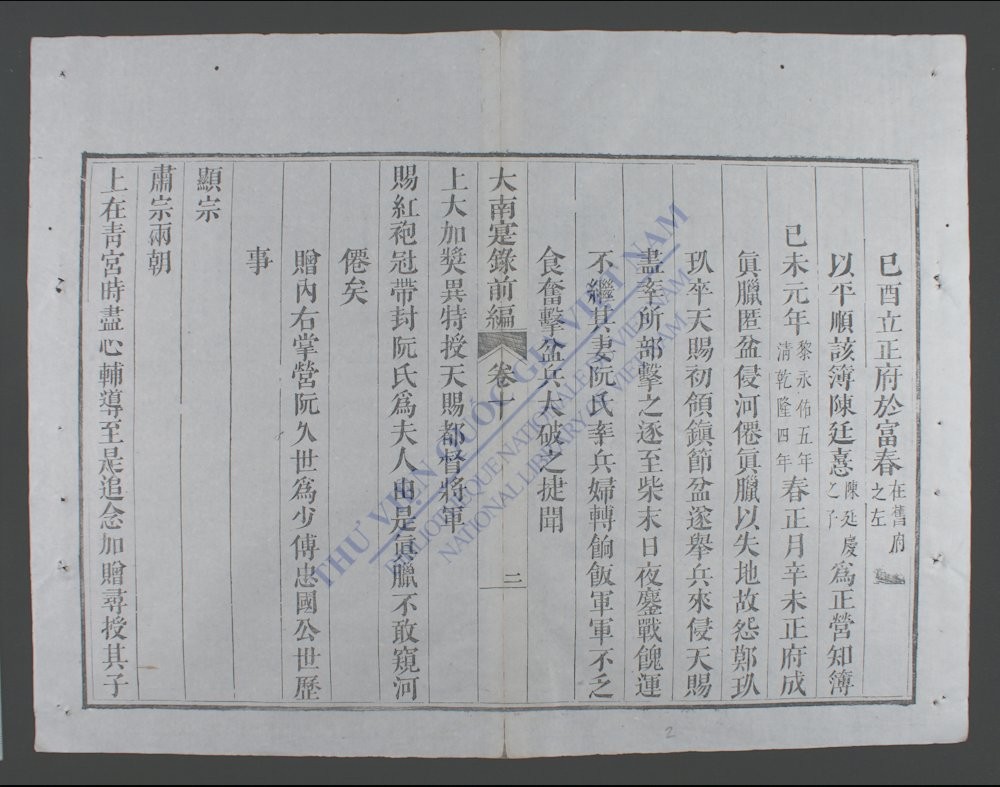 巳酉立正府於富春在舊府之左
以平順該簿陳廷憙陳廷慶之子為正營知簿
己未元年黎永佑五年清乾隆四年春正月辛未正府成
眞臘匿盆侵河僊眞臘以失地故怨鄭玖
玖卒天賜初領鎮節盆遂舉兵來侵天賜
盡率所部擊之逐至柴末日夜鏖戰餽運
不繼其妻阮氏率兵婦轉餉飯軍軍不乏
食奮擊盆兵大破之捷聞
大南寔錄前編 卷十 二
上大加奬異特授天賜都督將軍
賜紅袍冠帶封阮氏為夫人由是眞臘不敢窺河
僊矣
贈內右掌營阮久世為少傅忠國公世歷
事
顯宗
肅宗兩朝
上在靑宮時盡心輔導至是追念加贈尋授其子
THƯ VIỆN QUỐC GIA VIỆT NAM
BIBLIOTHEQUE NATIONALE DU VIETNAM
NATIONAL LIBRARY OF VIETNAM
2